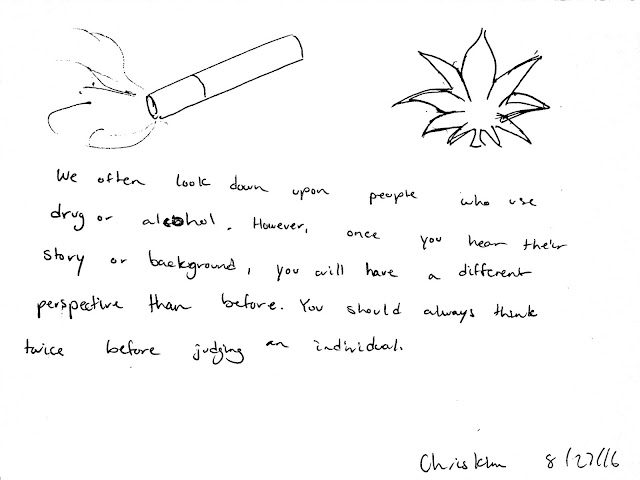 We often look down upon people who use
drug or alcohol. However, once you hear their
story or background, you will have a different
perspective than before. You should always think
twice before judging an individual.
Chris Kim 8/27/16